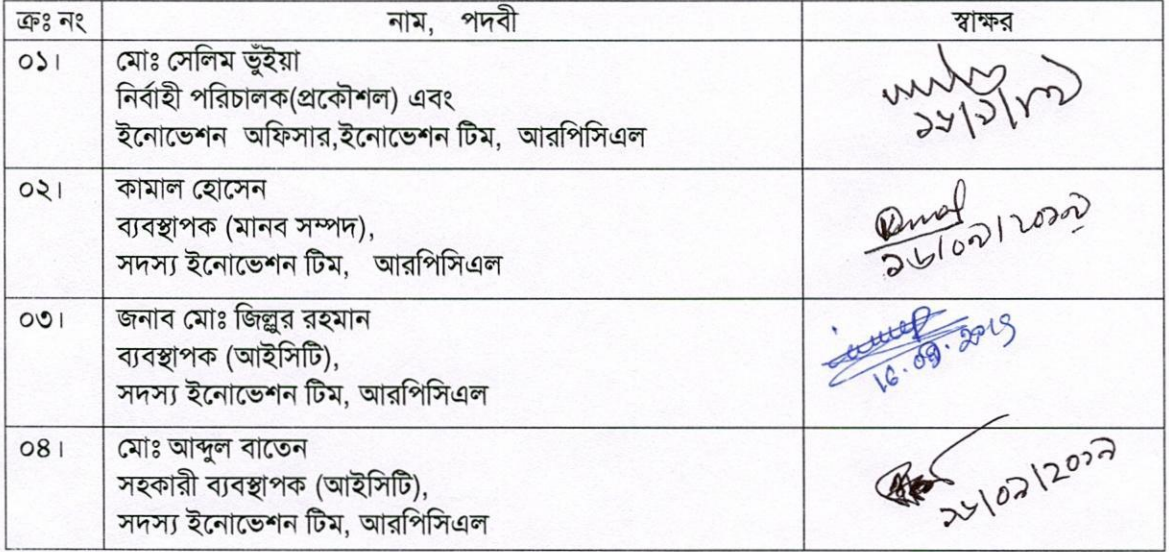 ক্রঃ নং নাম, পদবী স্বাক্ষর
০১। মোঃ সেলিম ভুঁইয়া
নির্বাহী পরিচালক(প্রকৌশল) এবং
ইনোভেশন অফিসার,ইনোভেশন টিম, আরপিসিএল
০২। কামাল হোসেন
ব্যবস্থাপক (মানব সম্পদ),
সদস্য ইনোভেশন টিম, আরপিসিএল
১৬/০৯/২০১৯
০৩। জনাব মোঃ জিল্লুর রহমান
ব্যবস্থাপক (আইসিটি),
সদস্য ইনোভেশন টিম, আরপিসিএল
০৪। মোঃ আব্দুল বাতেন
সহকারী ব্যবস্থাপক (আইসিটি),
সদস্য ইনোভেশন টিম, আরপিসিএল
১৬/০৯/২০১৯